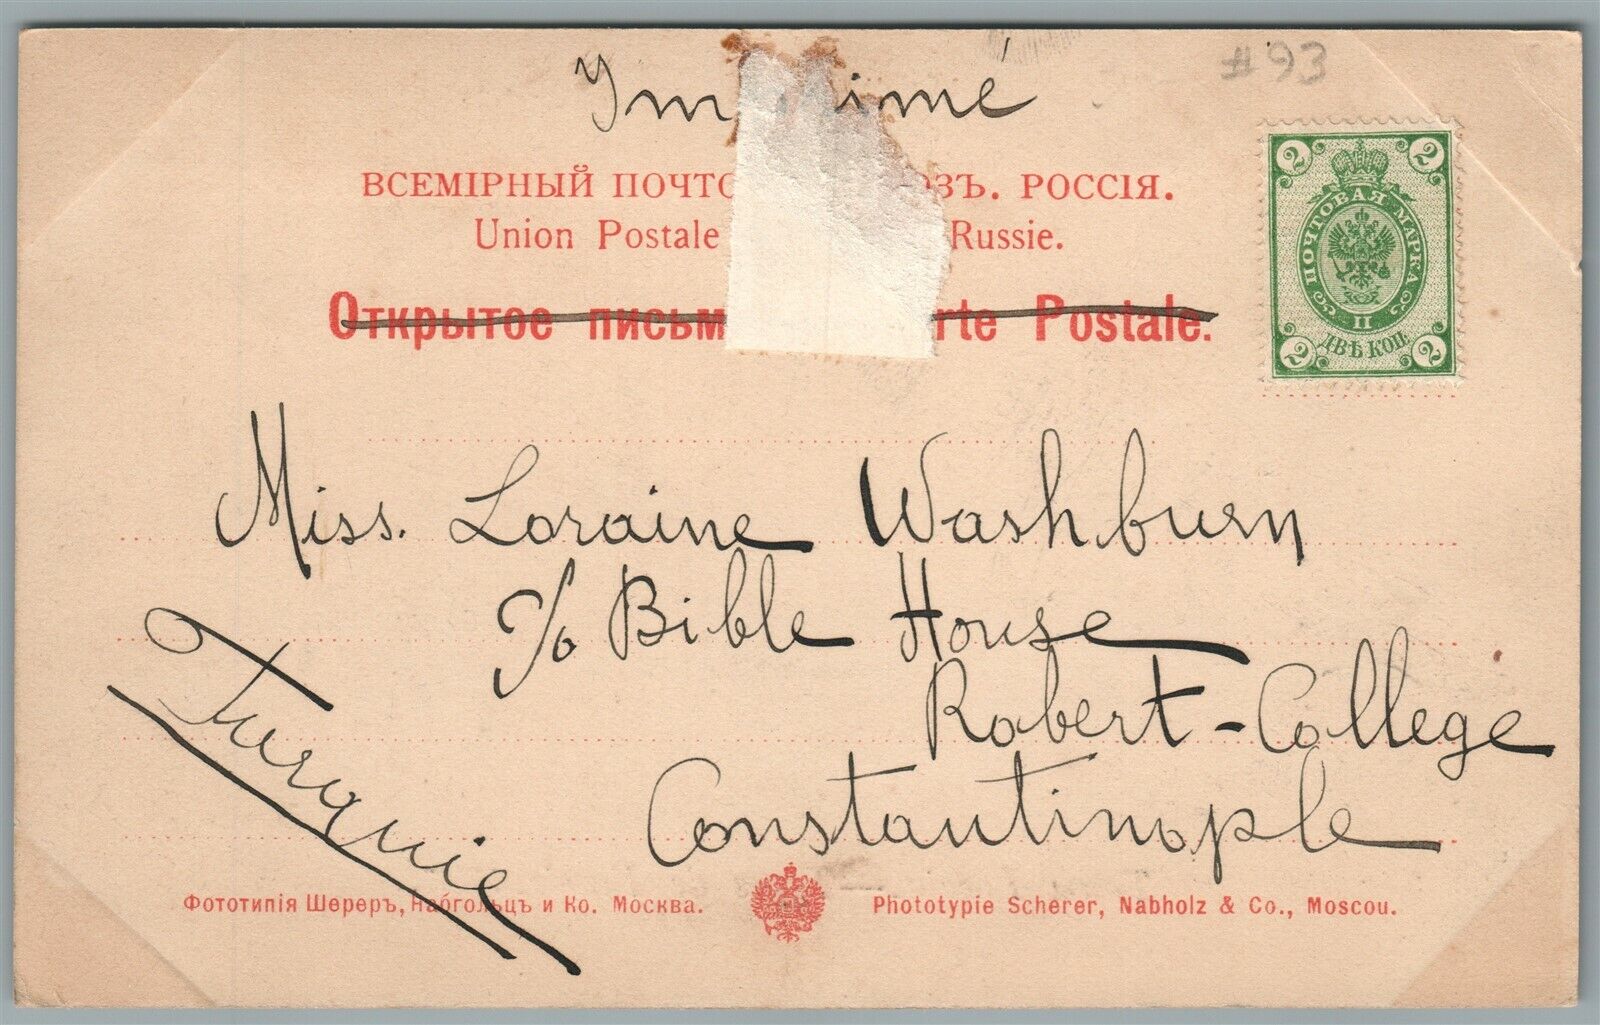 #93
Im  imé
ВСЕМІРНЫЙ ПОЧТО  ОЗЪ. РОССІЯ.
Union Postale  Russie.
Открытое письм  rte Postale.
2 2
ПОЧТОВАЯ МАРКА
II
2 ДВѢ КОП. 2
Miss. Loraine Washburn
c/o Bible House
Robert-College
Constantinople
Turquie
Фототипія Шереръ, Набгольцъ и Ко. Москва.
Phototypie Scherer, Nabholz & Co., Moscou.